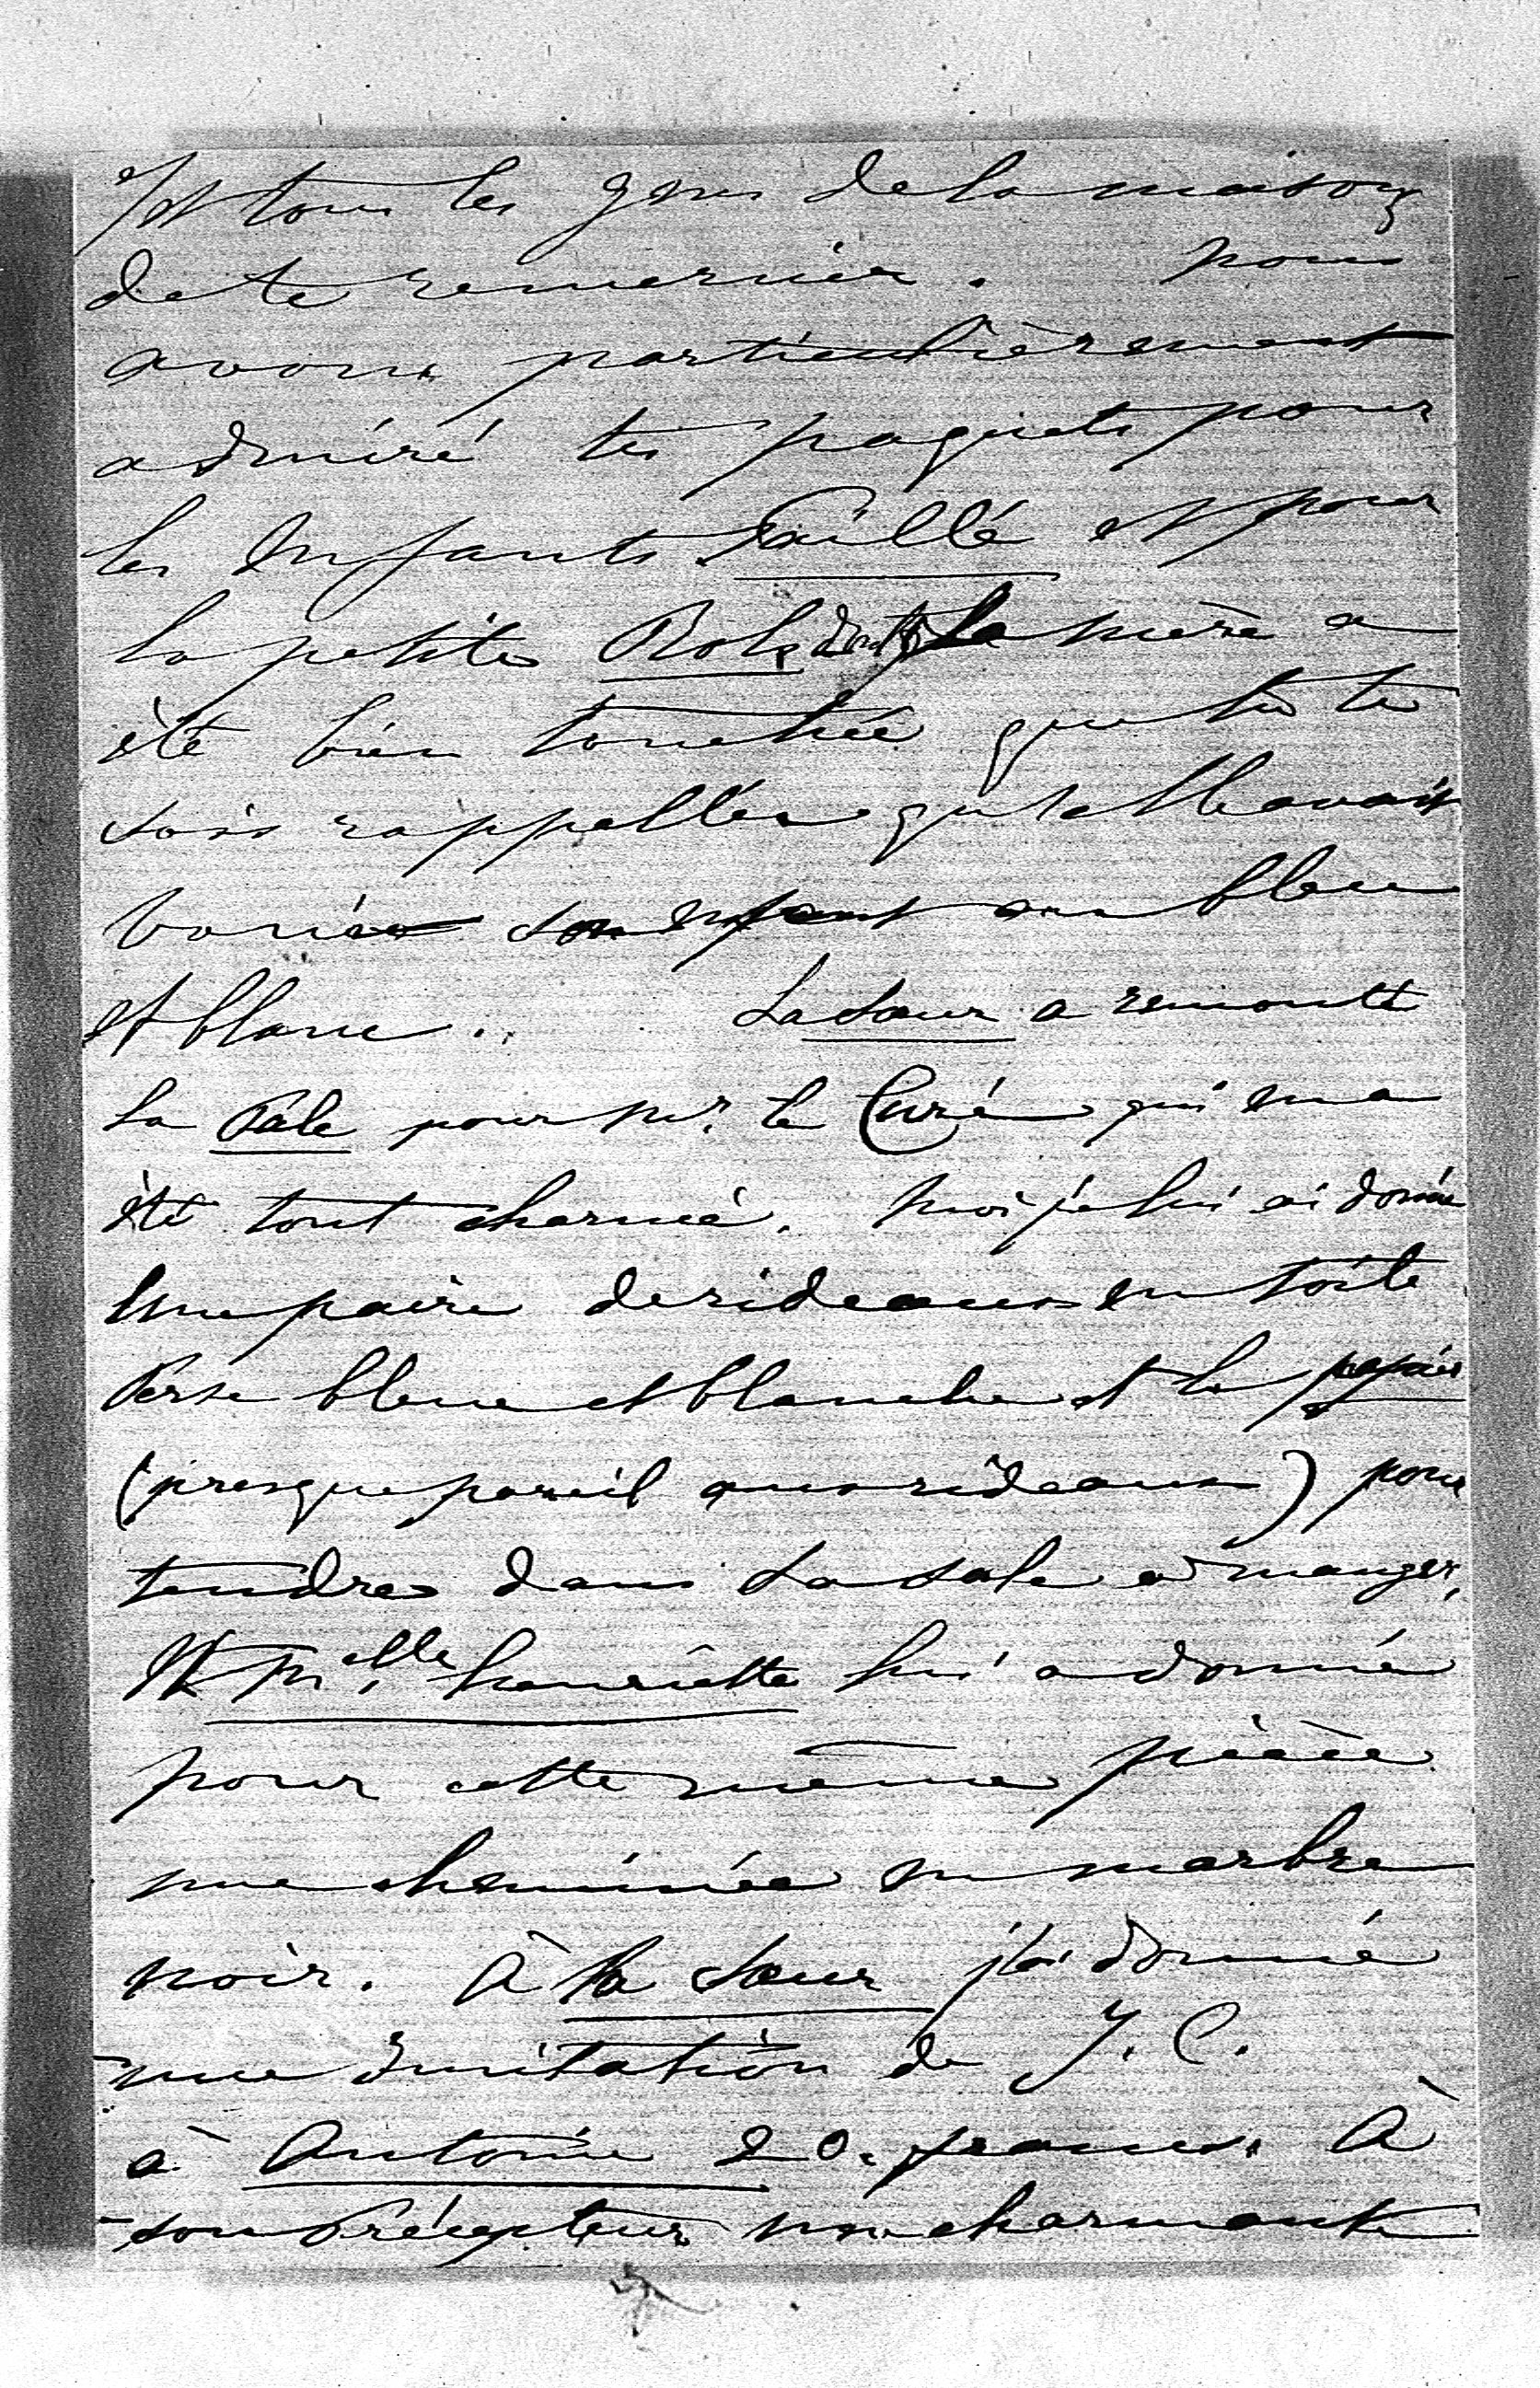 Et tous les gens de la maison
de te remercier. Nous
avons particulièrement
admiré tes paquets pour
les enfants Paillé et pour
la petite dont la mère a
été bien touchée que tu te
sois rappellée qu'elle avait
son enfant au bleu
et blanc. La Sœur a remonté
la Pale pour Mr. le Curé qui en a
été tout charmé. Moi je lui ai donné
Une paire de rideaux en toile
Perse bleue et blanche et le papier
(presque pareil aux rideaux) pour
tendre dans la sale a manger,
Et Melle. henriette lui a donné
pour cette même pièce
une cheminée en marbre
noir. À la Sœur j'ai donné
une Imitation de J. C.
à Antoine 20. francs. À
son Précepteur une charmante